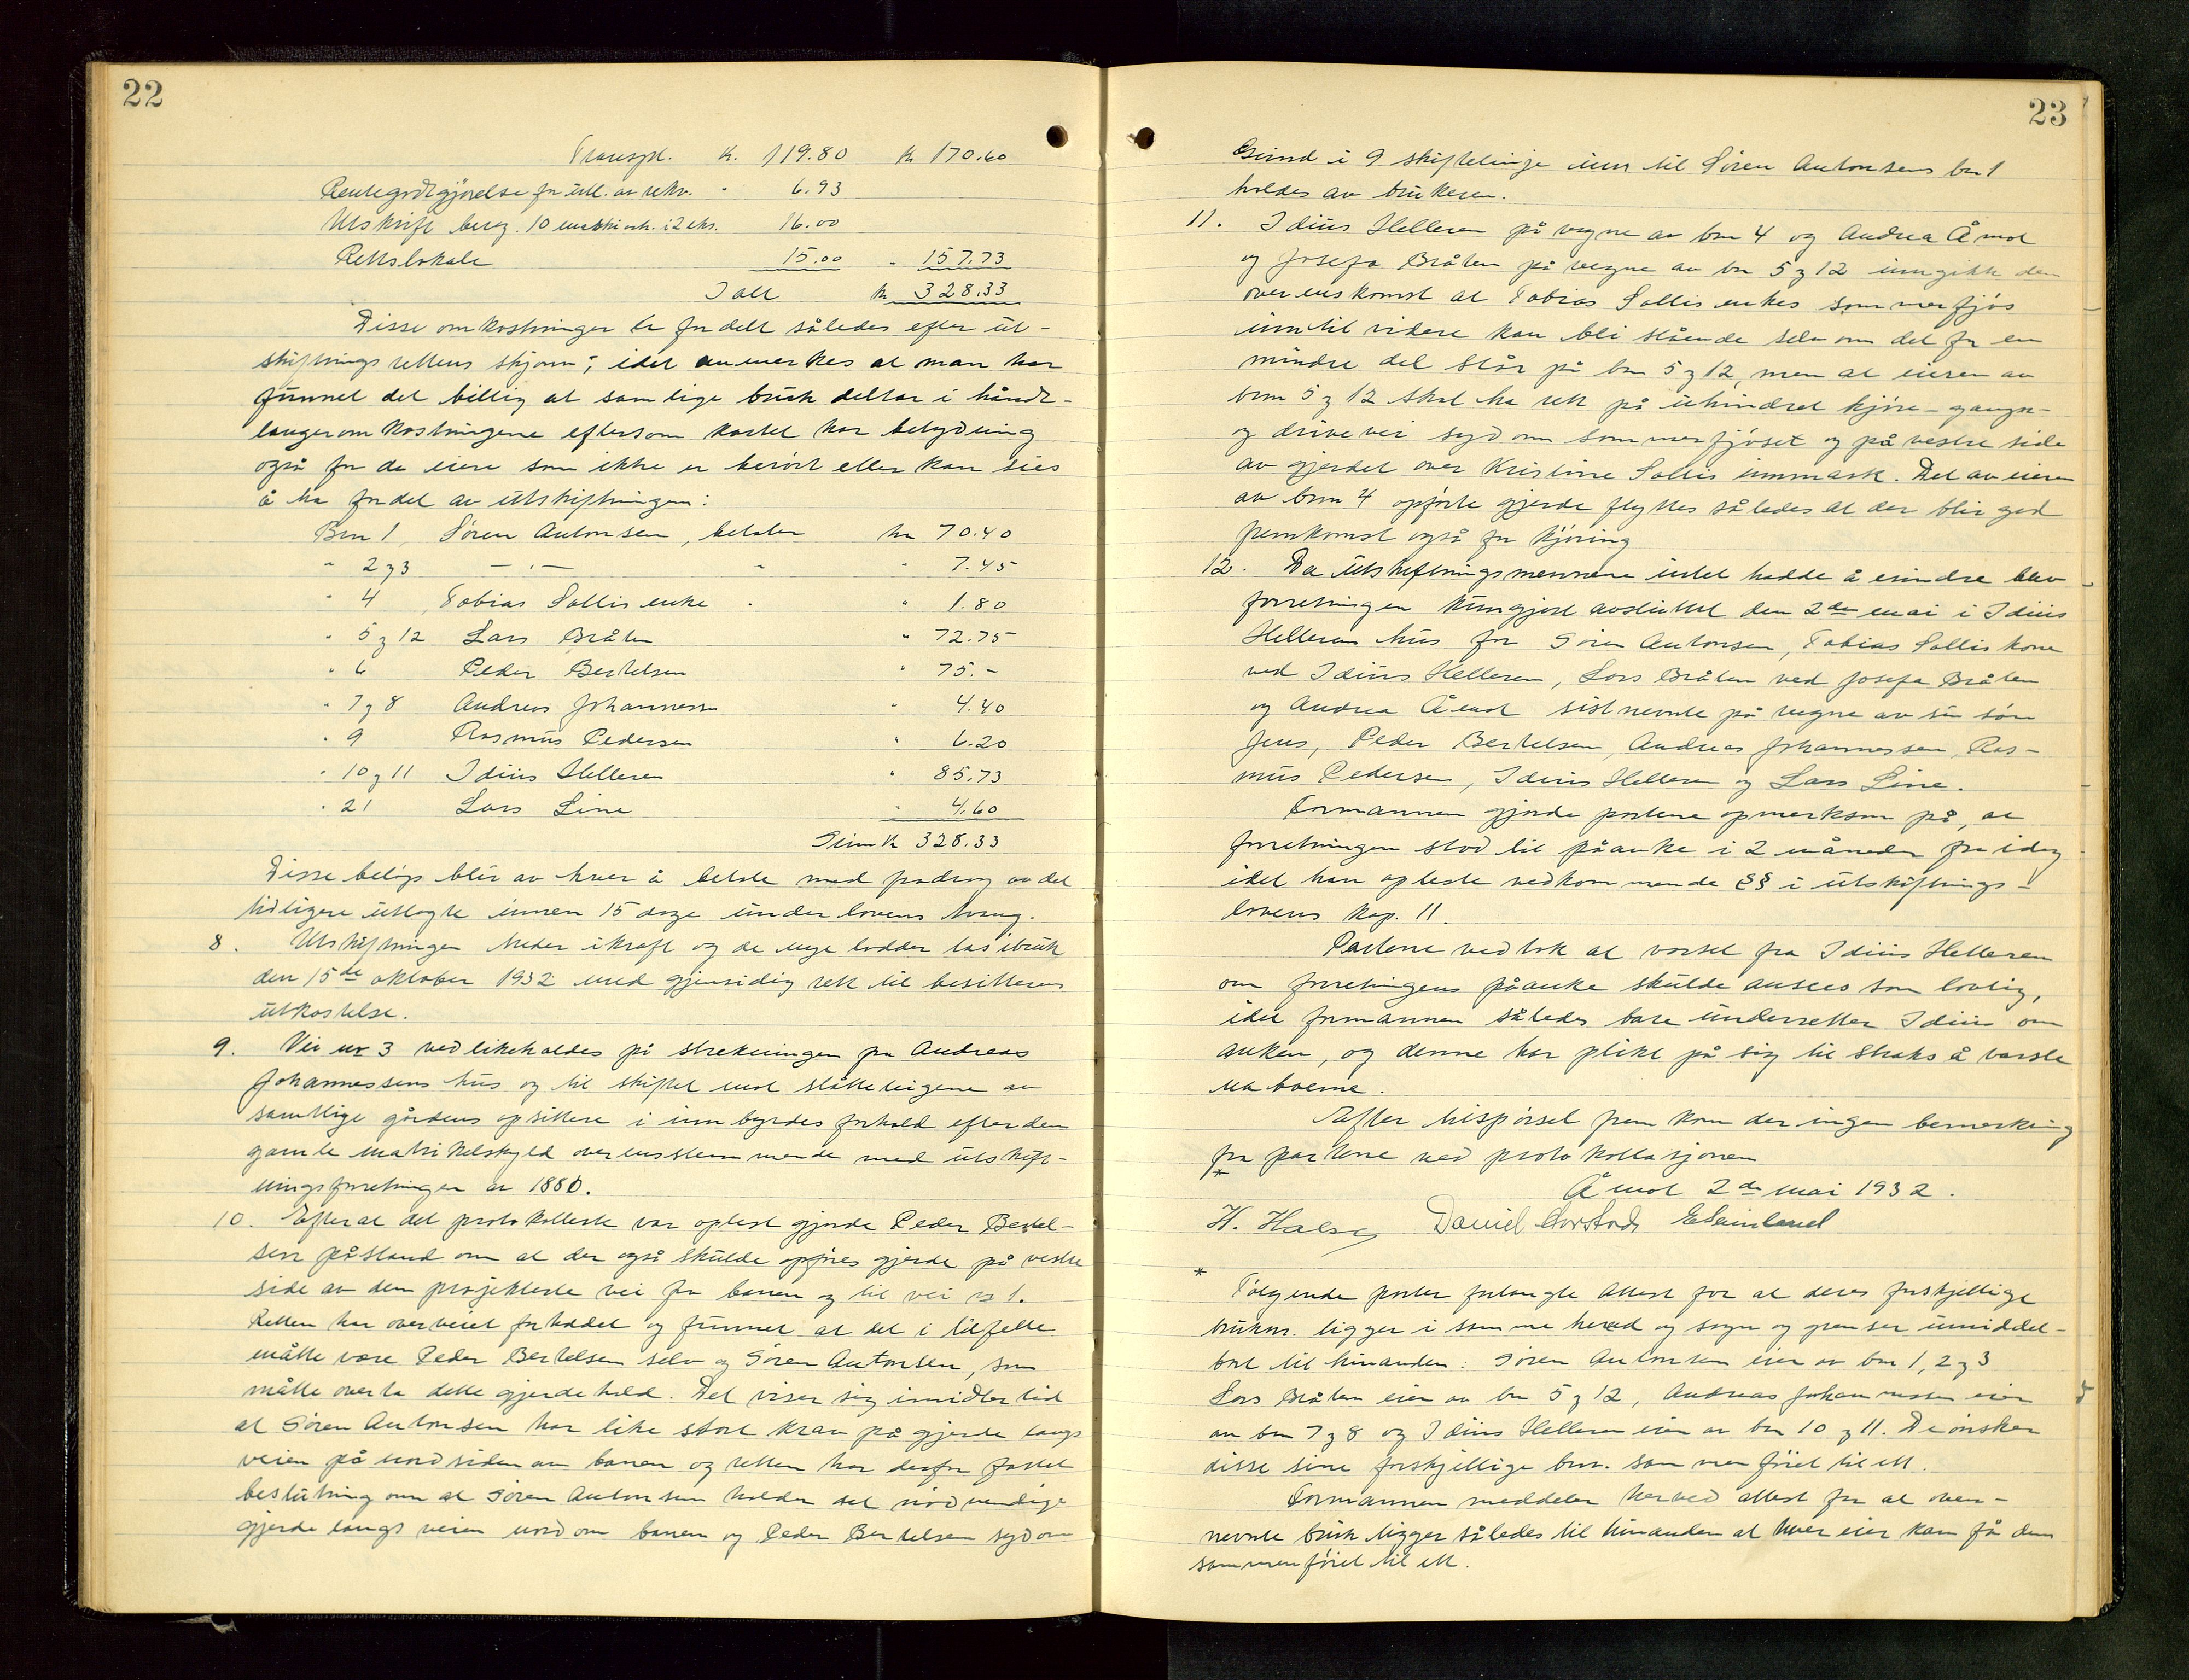 22
Transpl. K. 119.80 Kr 170.60
Rentegodtgjørelse for utl. av rekv. " 6.93
Utskrift bereg. 10 mask. ark. i 2 eks. 16.00
Rettslokale 15.00 " 157.73
Ialt kr 328.33
Disse omkostninger er fordelt således efter ut-
skiftningsrettens skjønn; idet anmerkes at man har
funnet det billig at samlige bruk deltar i hånd-
langeromkostningene eftersom kartet har betydning
også for de eiere som ikke er berørt eller kan sies
å ha fordel av utskiftningen:
Brn 1, Søren Antonsen, betaler kr 70.40
" 2 og 3 — " — " " 7.45
" 4 Tobias Sollis enke " " 1.80
" 5 og 12 Lars Bråten " 72.75
" 6 Peder Bertelsen " 75.-
" 7 og 8 Andreas Johannessen " 4.40
" 9 Rasmus Pedersen " 6.20
" 10 og 11 Idius Helleren " 85.73
" 21 Lars Line " 4.60
Sum K 328.33
Disse beløp blir av hver å betale med fradrag av det
tidligere utlagte innen 15 dage under lovens tvang.
8. Utskiftningen treder i kraft og de nye lodder tas i bruk
den 15de oktober 1932 med gjensidig rett til besitterens
utkastelse.
9. Vei nr 3 vedlikeholdes på strekningen fra Andreas
Johannessens hus og til skiftet mot slåtteteigene av
samtlige gårdens opsittere i innbyrdes forhold efter den
gamle matrikelskyld overensstemmende med utskift-
ningsforretningen av 1880.
10. Efterat det protokollerte var oplest gjorde Peder Bertel-
sen påstand om at der også skulde opføres gjerde på vestre
side av den projekterte vei fra banen og til vei nr 1.
Retten har overveiet forholdet og funnet at det i tilfelle
måtte være Peder Bertelsen selv og Søren Antonsen, som
måtte overta dette gjerdehold. Det viser sig imidlertid
at Søren Antonsen har like stort krav på gjerde langs
veien på nordsiden av banen og retten har derfor fattet
beslutning om at Søren Antonsen holder det nødvendige
gjerde langs veien nord om banen og Peder Bertelsen syd om
23
Grind i 9 skiftelinje inn til Søren Antonsens bn 1
holdes av brukeren.
11. Idius Helleren på vegne av bn 4 og Andrea Åmot
og Josefa Bråten på vegne av bn 5 og 12 inngikk den
overenskomst at Tobias Sollis enkes sommerfjøs
inntil videre kan bli stående selv om det for en
mindre del står på bn 5 og 12, men at eieren av
brn 5 og 12 skal ha rett på uhindret kjøre- gangs-
og drivevei syd om sommerfjøset og på vestre side
av gjerdet over Kristine Sollis innmark. Det av eieren
av brn 4 opførte gjerde flyttes således at der blir god
fremkomst også for kjøring
12. Da utskiftningsmennene intet hadde å erindre blev
forretningen kunngjort avsluttet den 2den mai i Idius
Hellerens hus for Søren Antonsen, Tobias Sollis kone
ved Idius Helleren, Lars Bråten ved Josefa Bråten
og Andrea Åmot sistnevnte på vegne av sin sønn
Jens, Peder Bertelsen, Andreas Johannessen, Ras-
mus Pedersen, Idius Helleren og Lars Line.
Formannen gjorde partene opmerksom på, at
forretningen stod til påanke i 2 måneder fra idag
idet han opleste vedkommende §§ i utskiftnings-
lovens kap. 11.
Partene vedtok at varsel fra Idius Helleren
om forretningens påanke skulde ansees som lovlig,
idet formannen således bare underretter Idius om
anken, og denne har plikt på sig til straks å varsle
naboerne.
Efter tilspørsel fremkom der ingen bemerkning
fra partene ved protokollasjonen
*
Åmot 2den mai 1932.
H. Halse Daniel
*
Følgende parter forlangte attest for at deres forskjellige
bruksnr. ligger i samme herred og sogn og grenser umiddel-
bart til hinanden: Søren Antonsen eier av bn 1, 2 og 3
Lars Bråten eier av bn 5 og 12, Andreas Johannessen eier
av bn 7 og 8 og Idius Helleren eier av bn 10 og 11. De ønsker
disse sine forskjellige brn. sammenføiet til ett.
Formannen meddeler herved attest for at oven-
nevnte bruk ligger således til hinanden at hver eier kan få dem
sammenføiet til ett.